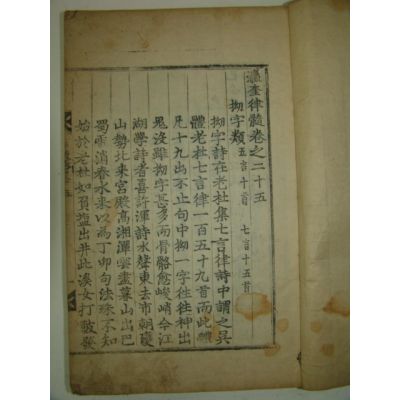 瀛奎律髓卷之二十五
拗字類 五言十首 七言十五首
拗字詩在老杜集七言律詩中謂之吳
體老杜七言律一百五十九首而此體
凡十九出不止句中拗一字往往神出
鬼沒雖拗字甚多而骨骼愈峻峭今江
湖學詩者喜許渾詩水聲東去市朝變
山勢北來宮殿高湘潭雲盡暮山出巴
蜀雪消春水來以為丁卯句法殊不知
始於老杜如負塩出井此溪女打皷發